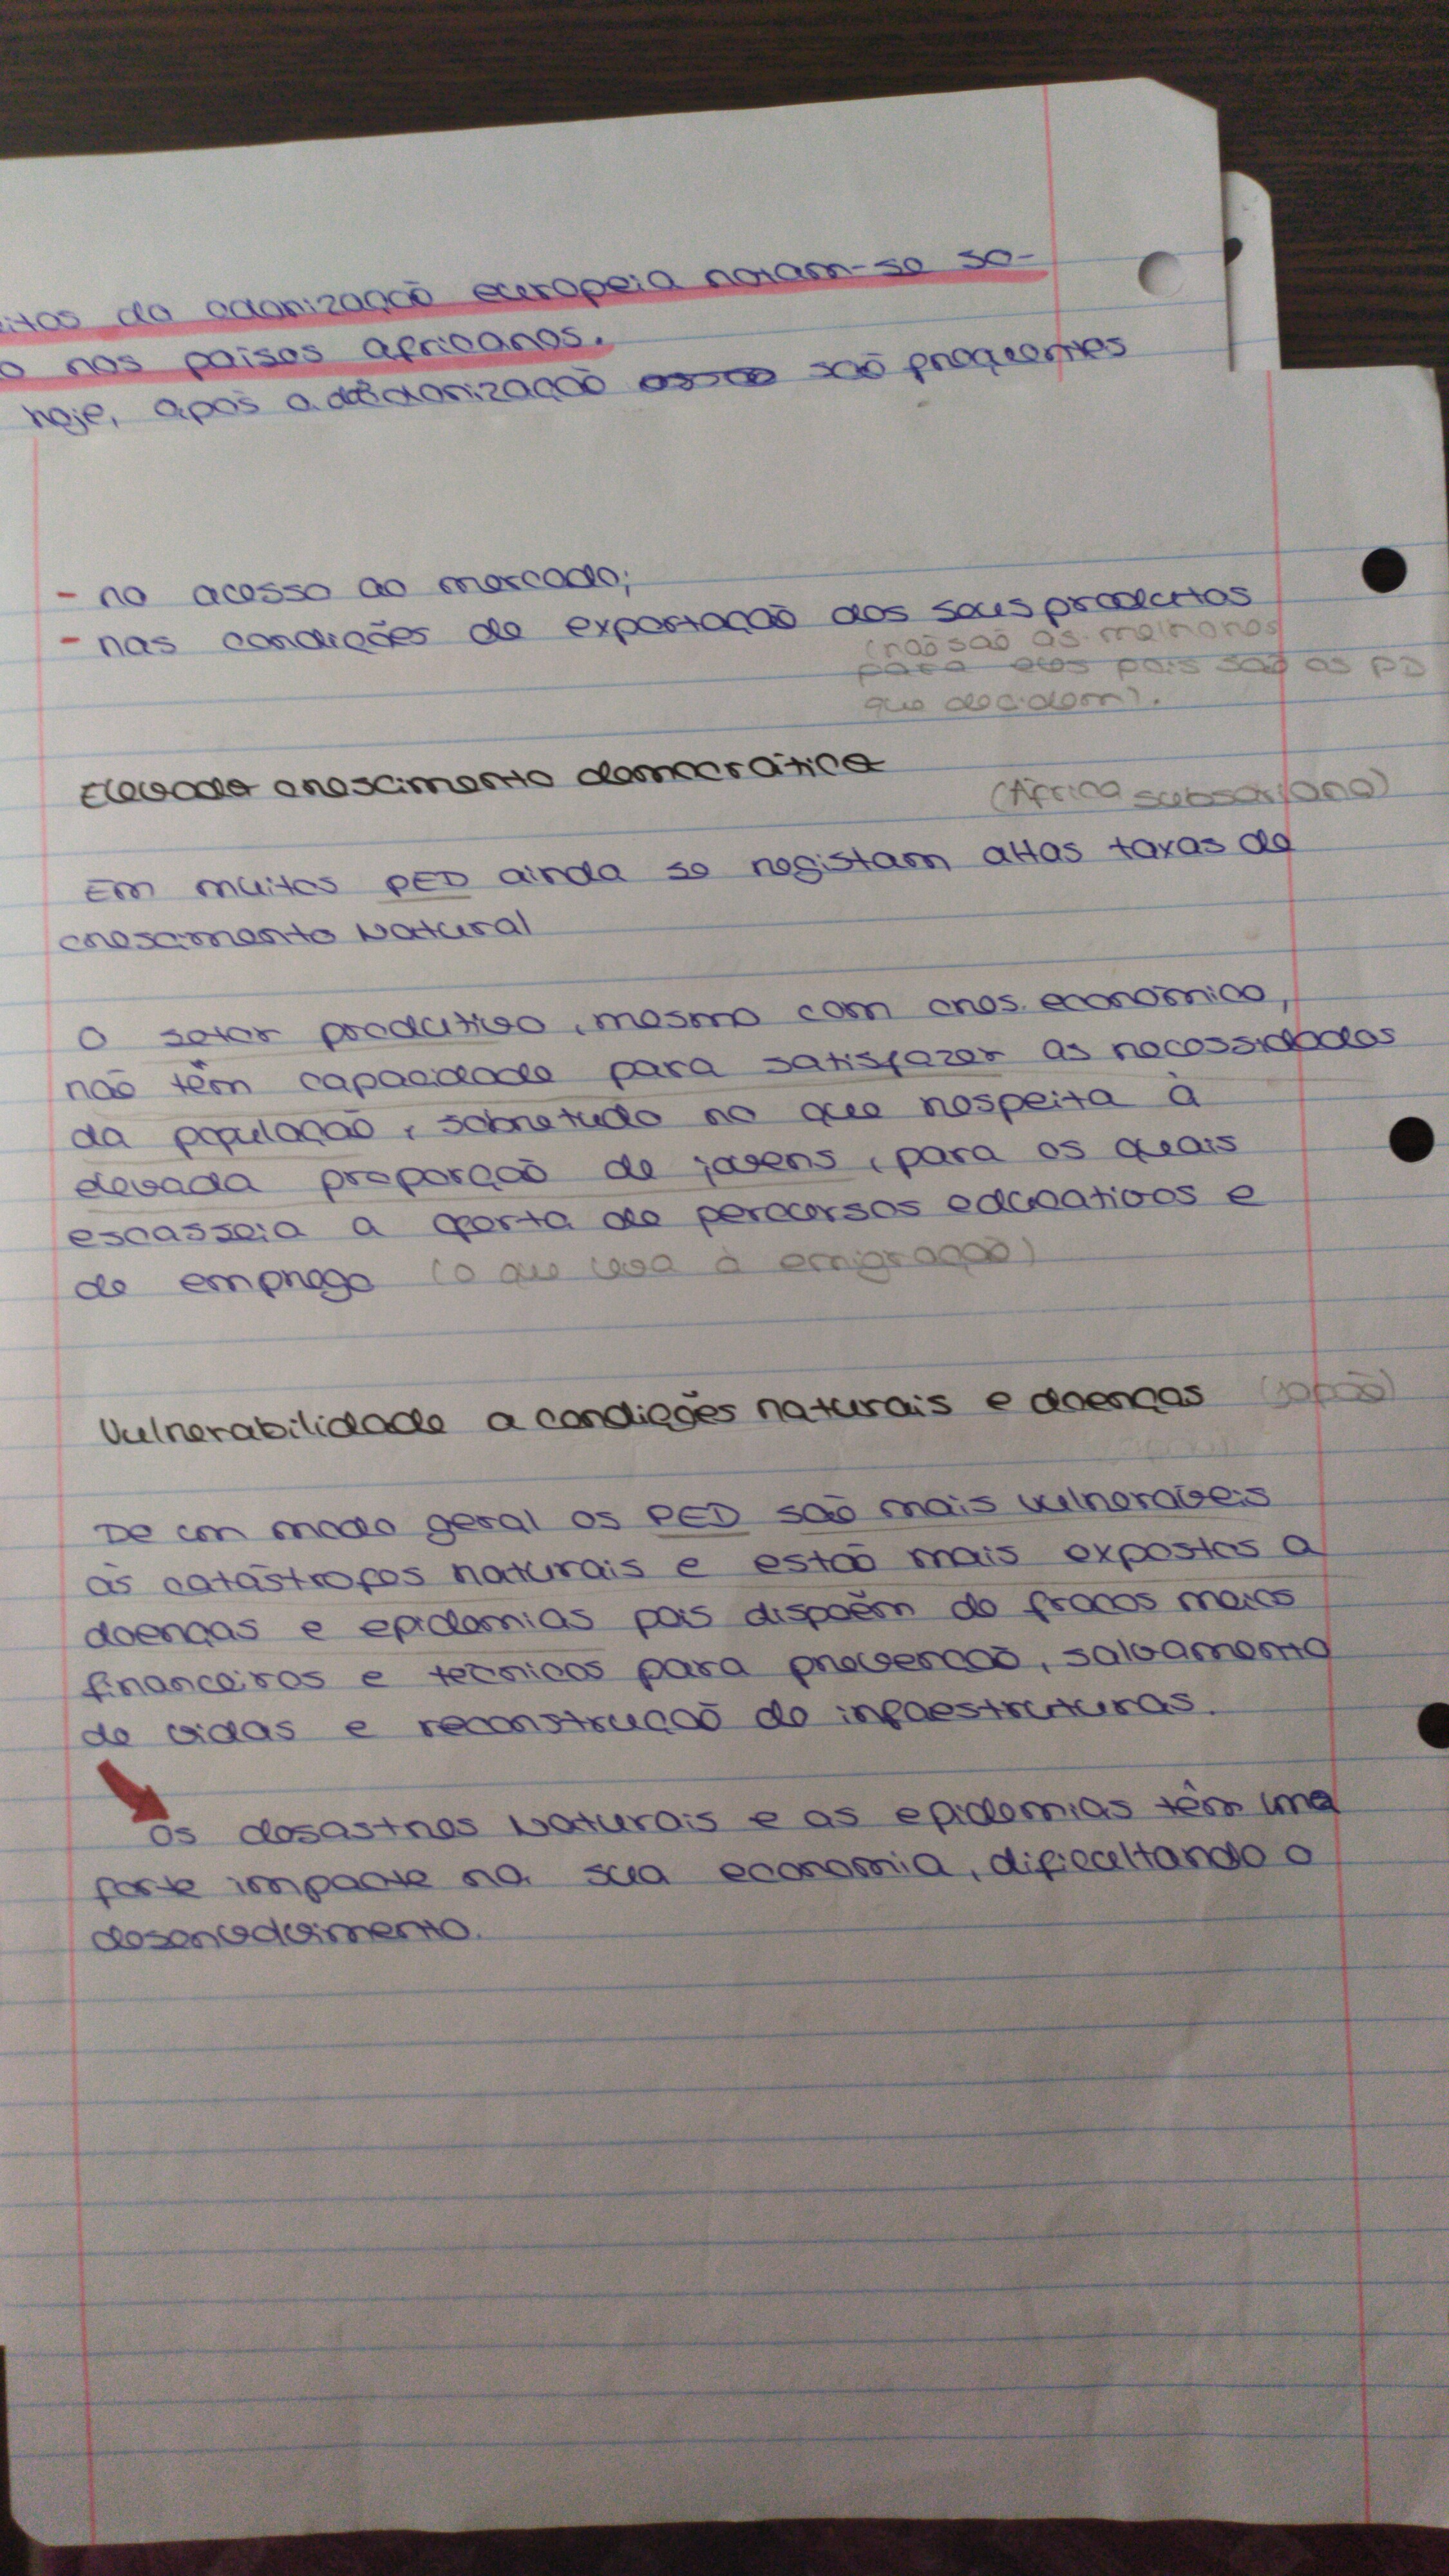 itos da colonização europeia notam-se so-
o nos países africanos.
hoje, após a descolonização são frequentes
- no acesso ao mercado;
- nas condições de exportação dos seus productos
(não são as melhores
para eles pois são os PD
que decidem).
Elevado crescimento democrático
(África subsariana)
Em muitos PED ainda se registam altas taxas de
crescimento Natural
O setor produtivo, mesmo com cres. económico,
não têm capacidade para satisfazer as necessidades
da população, sobretudo no que respeita à
elevada proporção de jovens, para os quais
escasseia a oferta de percursos educativos e
de emprego (o que leva à emigração)
Vulnerabilidade a condições naturais e doenças (Japão)
De um modo geral os PED são mais vulneráveis
às catástrofes naturais e estão mais expostos a
doenças e epidemias pois dispõem de fracos meios
financeiros e técnicos para prevenção, salvamento
de vidas e reconstrução de infaestruturas.
Os desastres Naturais e as epidemias têm uma
forte impacte na sua economia, dificultando o
desenvolvimento.